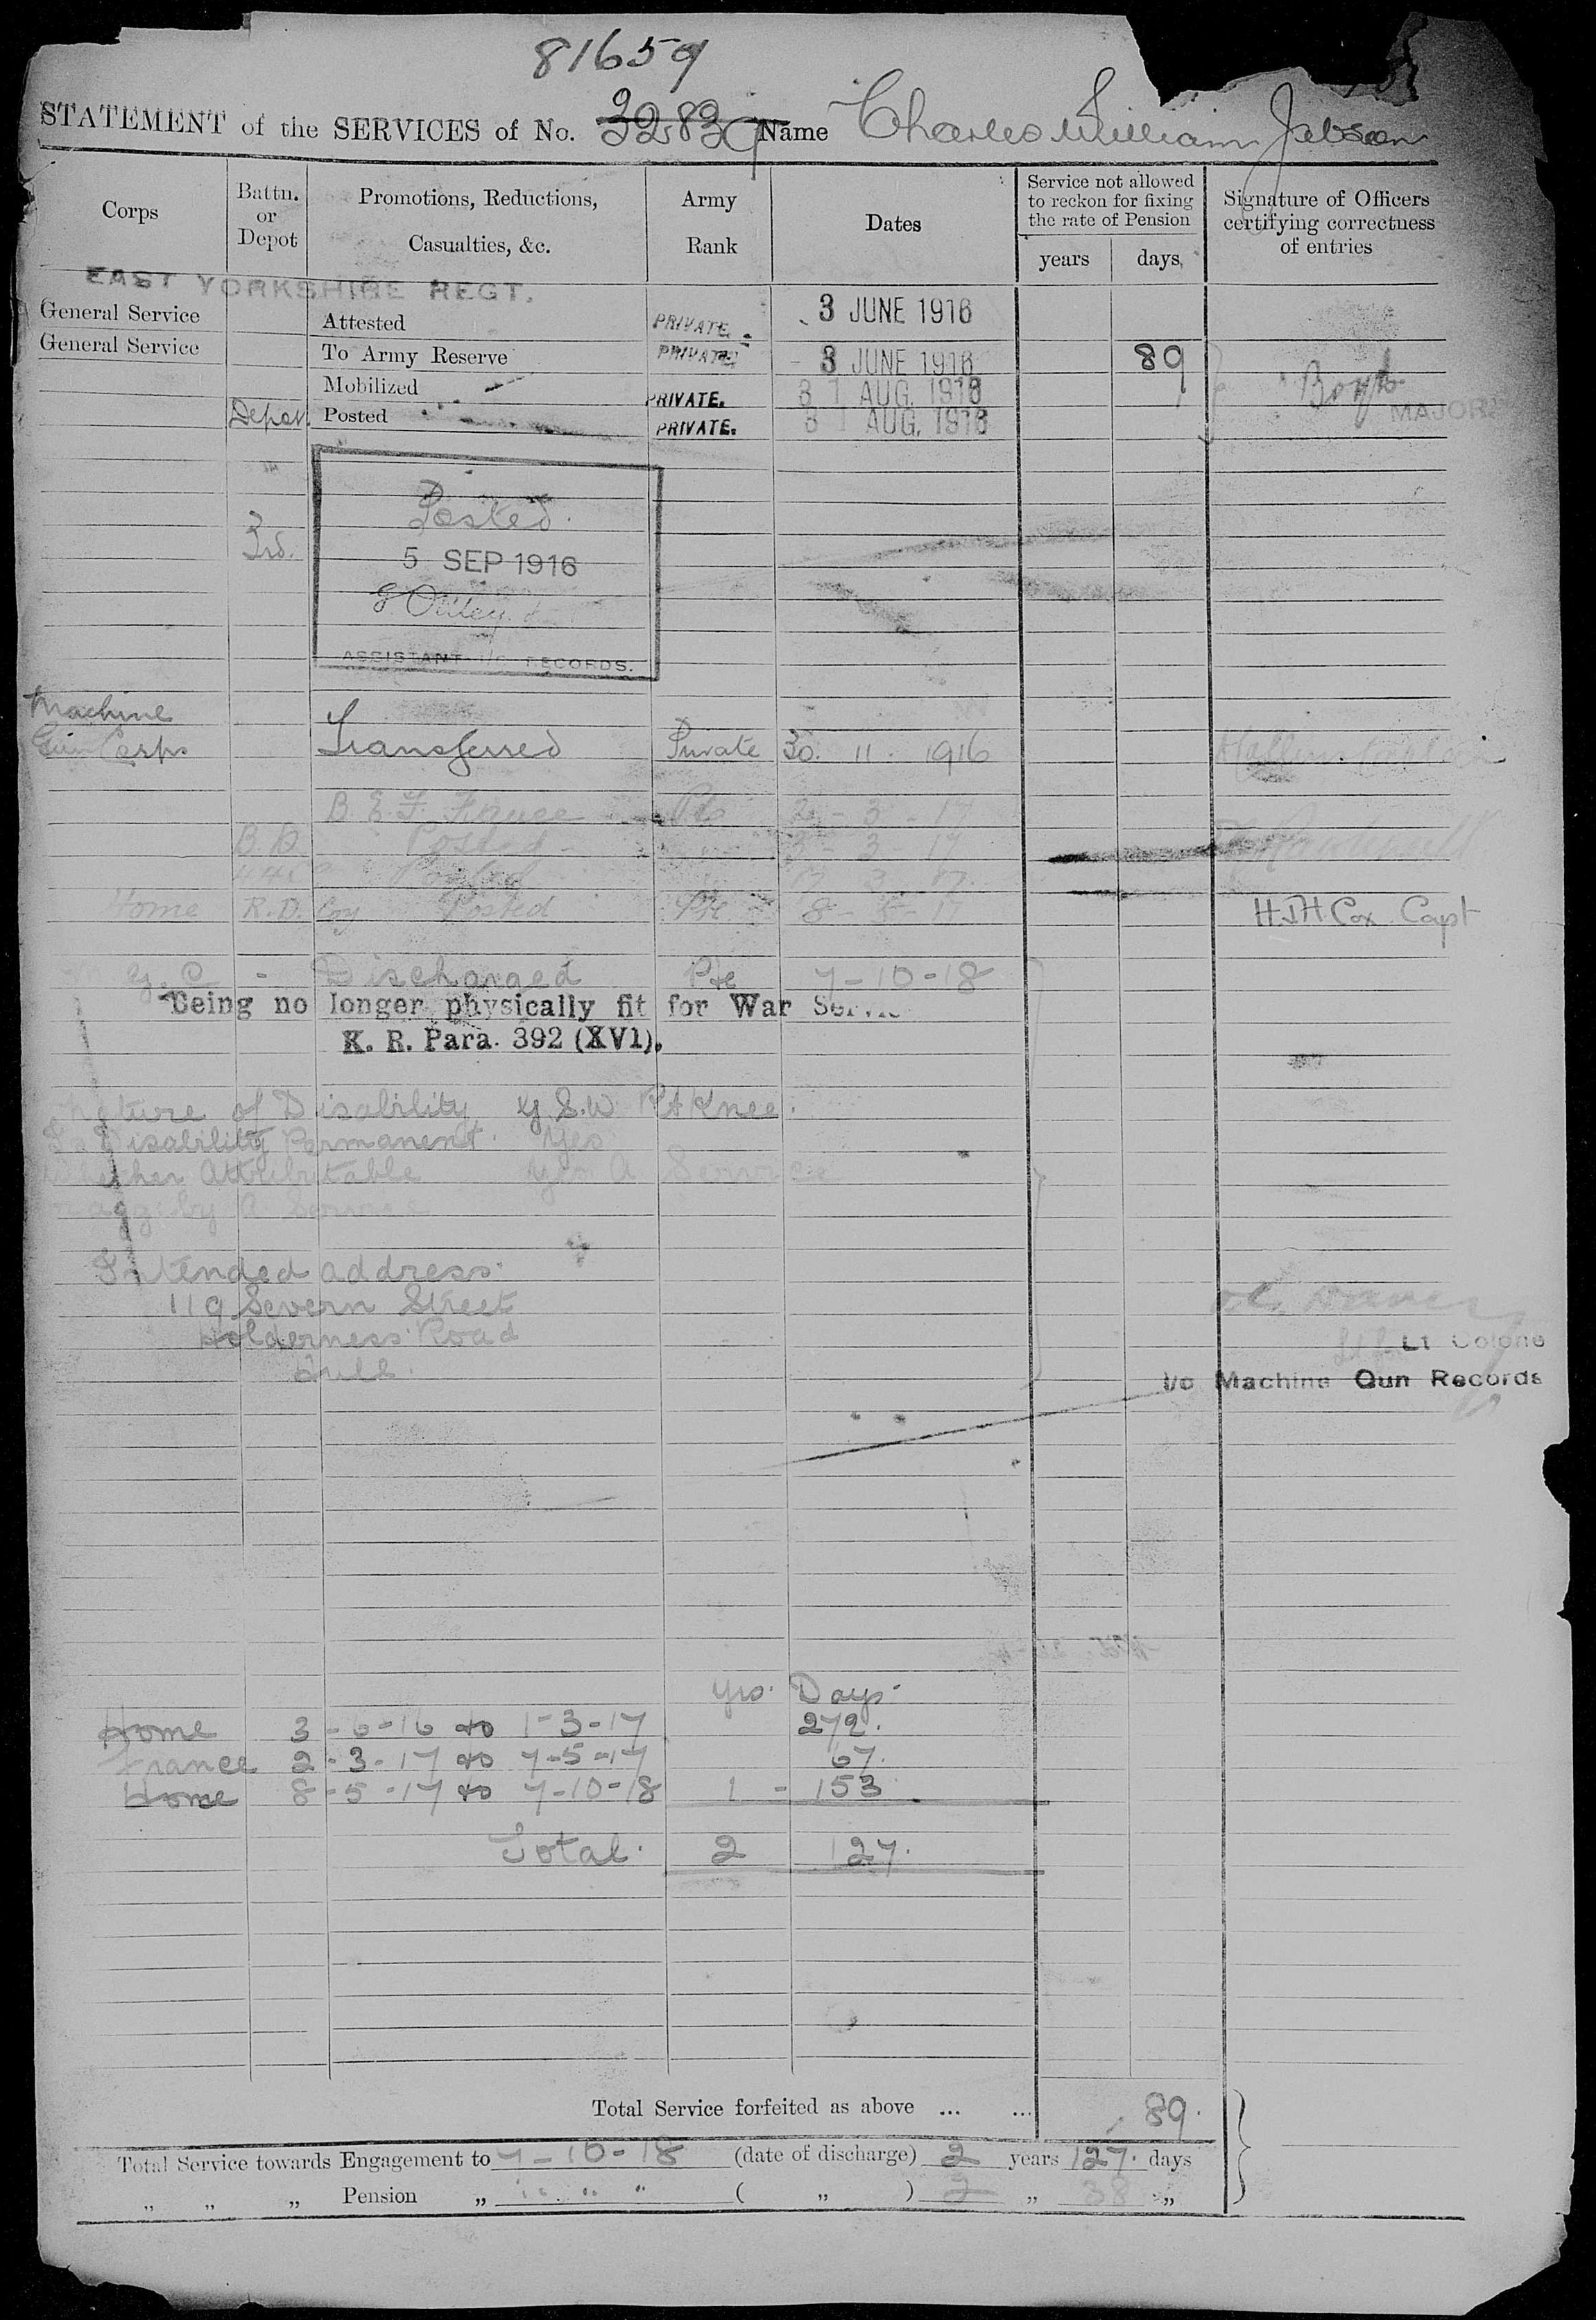 81659
STATEMENT of the SERVICES of No. 32839 Name Charles William Jebson
Corps
Battn. or Depot
Promotions, Reductions, Casualties, &c.
Army Rank
Dates
Service not allowed to reckon for fixing the rate of Pension
years days
Signature of Officers certifying correctness of entries
EAST YORKSHIRE REGT.
General Service Attested PRIVATE 3 JUNE 1916
General Service To Army Reserve PRIVATE 3 JUNE 1916 89
Mobilized PRIVATE. 31 AUG. 1916
Depot Posted PRIVATE. 31 AUG. 1916
MAJOR
3rd. Posted.
5 SEP 1916
ASSISTANT i/c RECORDS.
Machine
Gun Corps Transferred Private 30. 11. 1916
B. E. F. France Pte 2 - 3 - 17
B. D. Posted 3 - 3 - 17
Posted 17 3 17
Home R. D. Coy Posted Pte 8 - 5 - 17 H.J.H. Cox Capt
G. C - Discharged Pte 7-10-18
being no longer physically fit for War
K. R. Para. 392 (XVI).
Nature of Disability G.S.W Rt Knee.
Is Disability Permanent. Yes
Whether Attributable Yes A Service
agg by A. Service
Intended address.
119 Severn Street
Holderness Road
Hull.
Lt Colone
i/c Machine Gun Records
yrs. Days.
Home 3-6-16 to 1-3-17 272.
France 2-3-17 to 7-5-17 67.
Home 8-5-17 to 7-10-18 1 - 153
Total. 2 127.
Total Service forfeited as above ... ... 89.
Total Service towards Engagement to 7-10-18 (date of discharge) 2 years 127. days
„ „ „ Pension „ " " " ( „ ) 2 „ 38 „